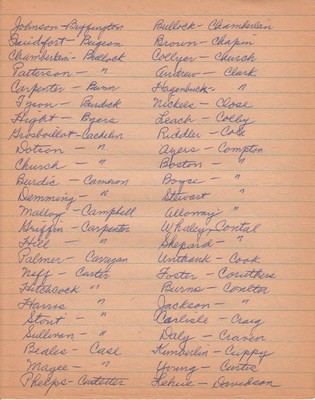 Johnson - Buffington
Chamberlain - Bullock
Patterson - "
Carpenter - Burr
Tyron - Burdick
Hight - Byers
Grosboillot - Cachelin
Dotson - "
Church - "
Burdic - Cameron
Demming - "
Malloy - Campbell
Griffin - Carpenter
Hill - "
Palmer - Carragan
Neff - Carter
Hitchcock "
Harris "
Stout - "
Sullivan - "
Beales - Case
Magee - "
Phelps -
Bullock - Chamberlain
Brown - Chapin
Collyer - Church
Andrew - Clark
Hagenbuck - "
Nickels - Close
Leach - Colby
Riddler - Cole
Ayers - Compton
Boston - "
Boyse - "
Stewart "
Alloway "
Whaley - Contal
Shepard - "
Unthank - Cook
Foster - Coruthers
Burns - Coulter
Jackson - "
Carlisle - Craig
Daly - Craven
Kimberlin - Cuppy
Young - Curtis
- Davidson